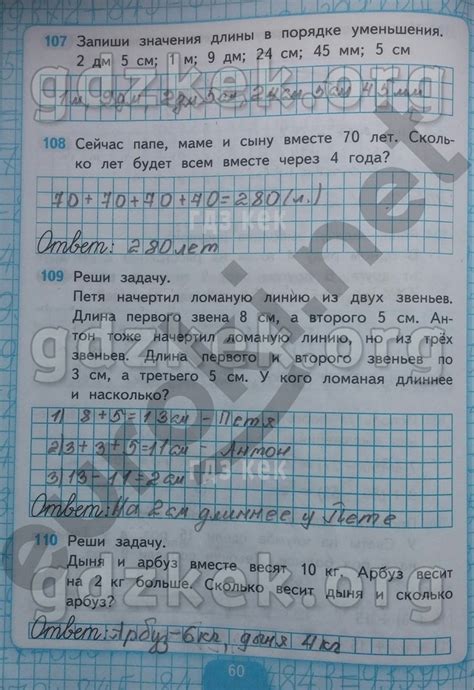 107 Запиши значения длины в порядке уменьшения.
2 дм 5 см; 1 м; 9 дм; 24 см; 45 мм; 5 см
gdzkek.org
1м, 9дм, 2дм 5см, 24см, 5см 45мм
108 Сейчас папе, маме и сыну вместе 70 лет. Сколь-
ко лет будет всем вместе через 4 года?
70+70+70+70=280(л.)
гдз кек
Ответ: 280 лет
109 Реши задачу.
Петя начертил ломаную линию из двух звеньев.
Длина первого звена 8 см, а второго 5 см. Ан-
тон тоже начертил ломаную линию, но из трёх
gdzkek.org
звеньев. Длина первого и второго звеньев по
3 см, а третьего 5 см. У кого ломаная длиннее
и насколько?
1) 8+5=13см - Петя
2) 3+3+5=11см - Антон
гдз кек
3) 13-11=2см
Ответ: На 2см длиннее у Пете
110 Реши задачу.
Дыня и арбуз вместе весят 10 кг. Арбуз весит
gdzkek.org
на 2 кг больше. Сколько весит дыня и сколько
арбуз?
Ответ: Арбуз-6кг, дыня 4кг
60
euroki.net